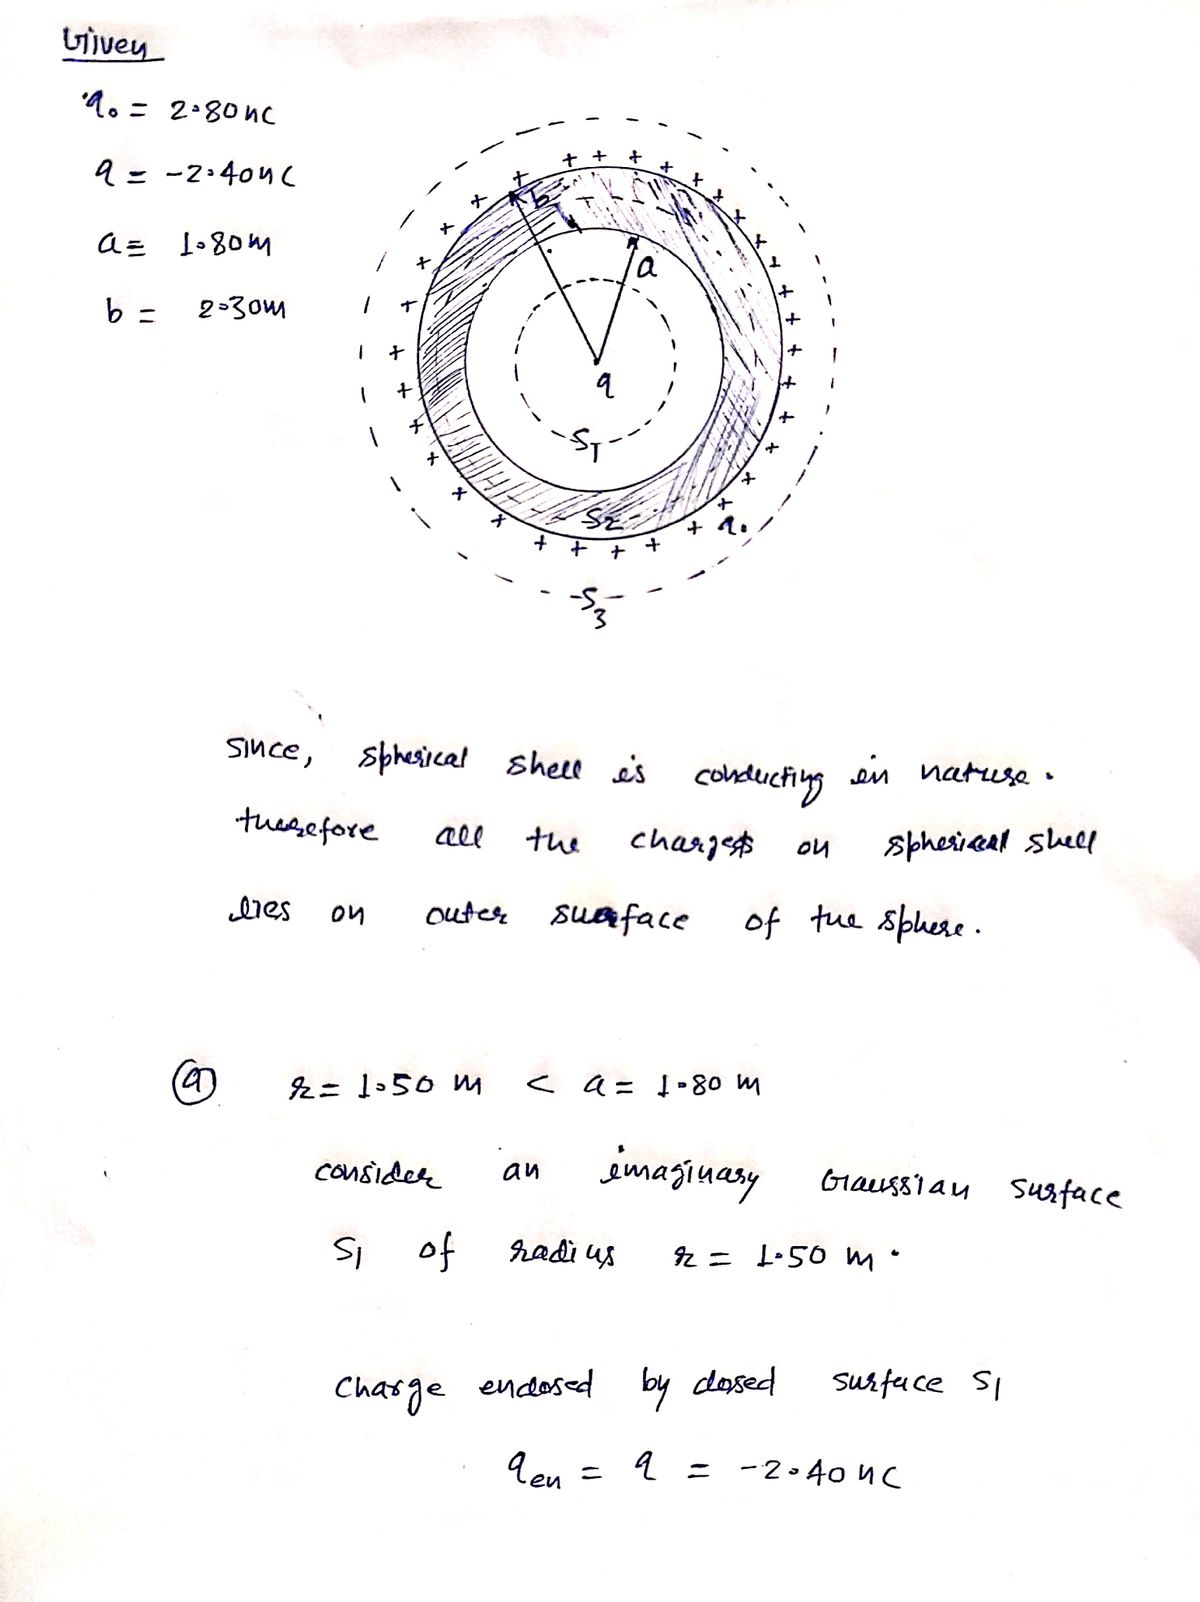 Given
q₀ = 2.80 nC
q = -2.40 nC
a = 1.80 m
b = 2.30 m
b
a
q
S₁
S₂
q₀
S₃
since, spherical shell is conducting in nature.
therefore all the charges on spherical shell
lies on outer surface of the sphere.
(a) r = 1.50 m < a = 1.80 m
consider an imaginary Gaussian surface
S₁ of radius r = 1.50 m.
charge enclosed by closed surface S₁
qen = q = -2.40 nC